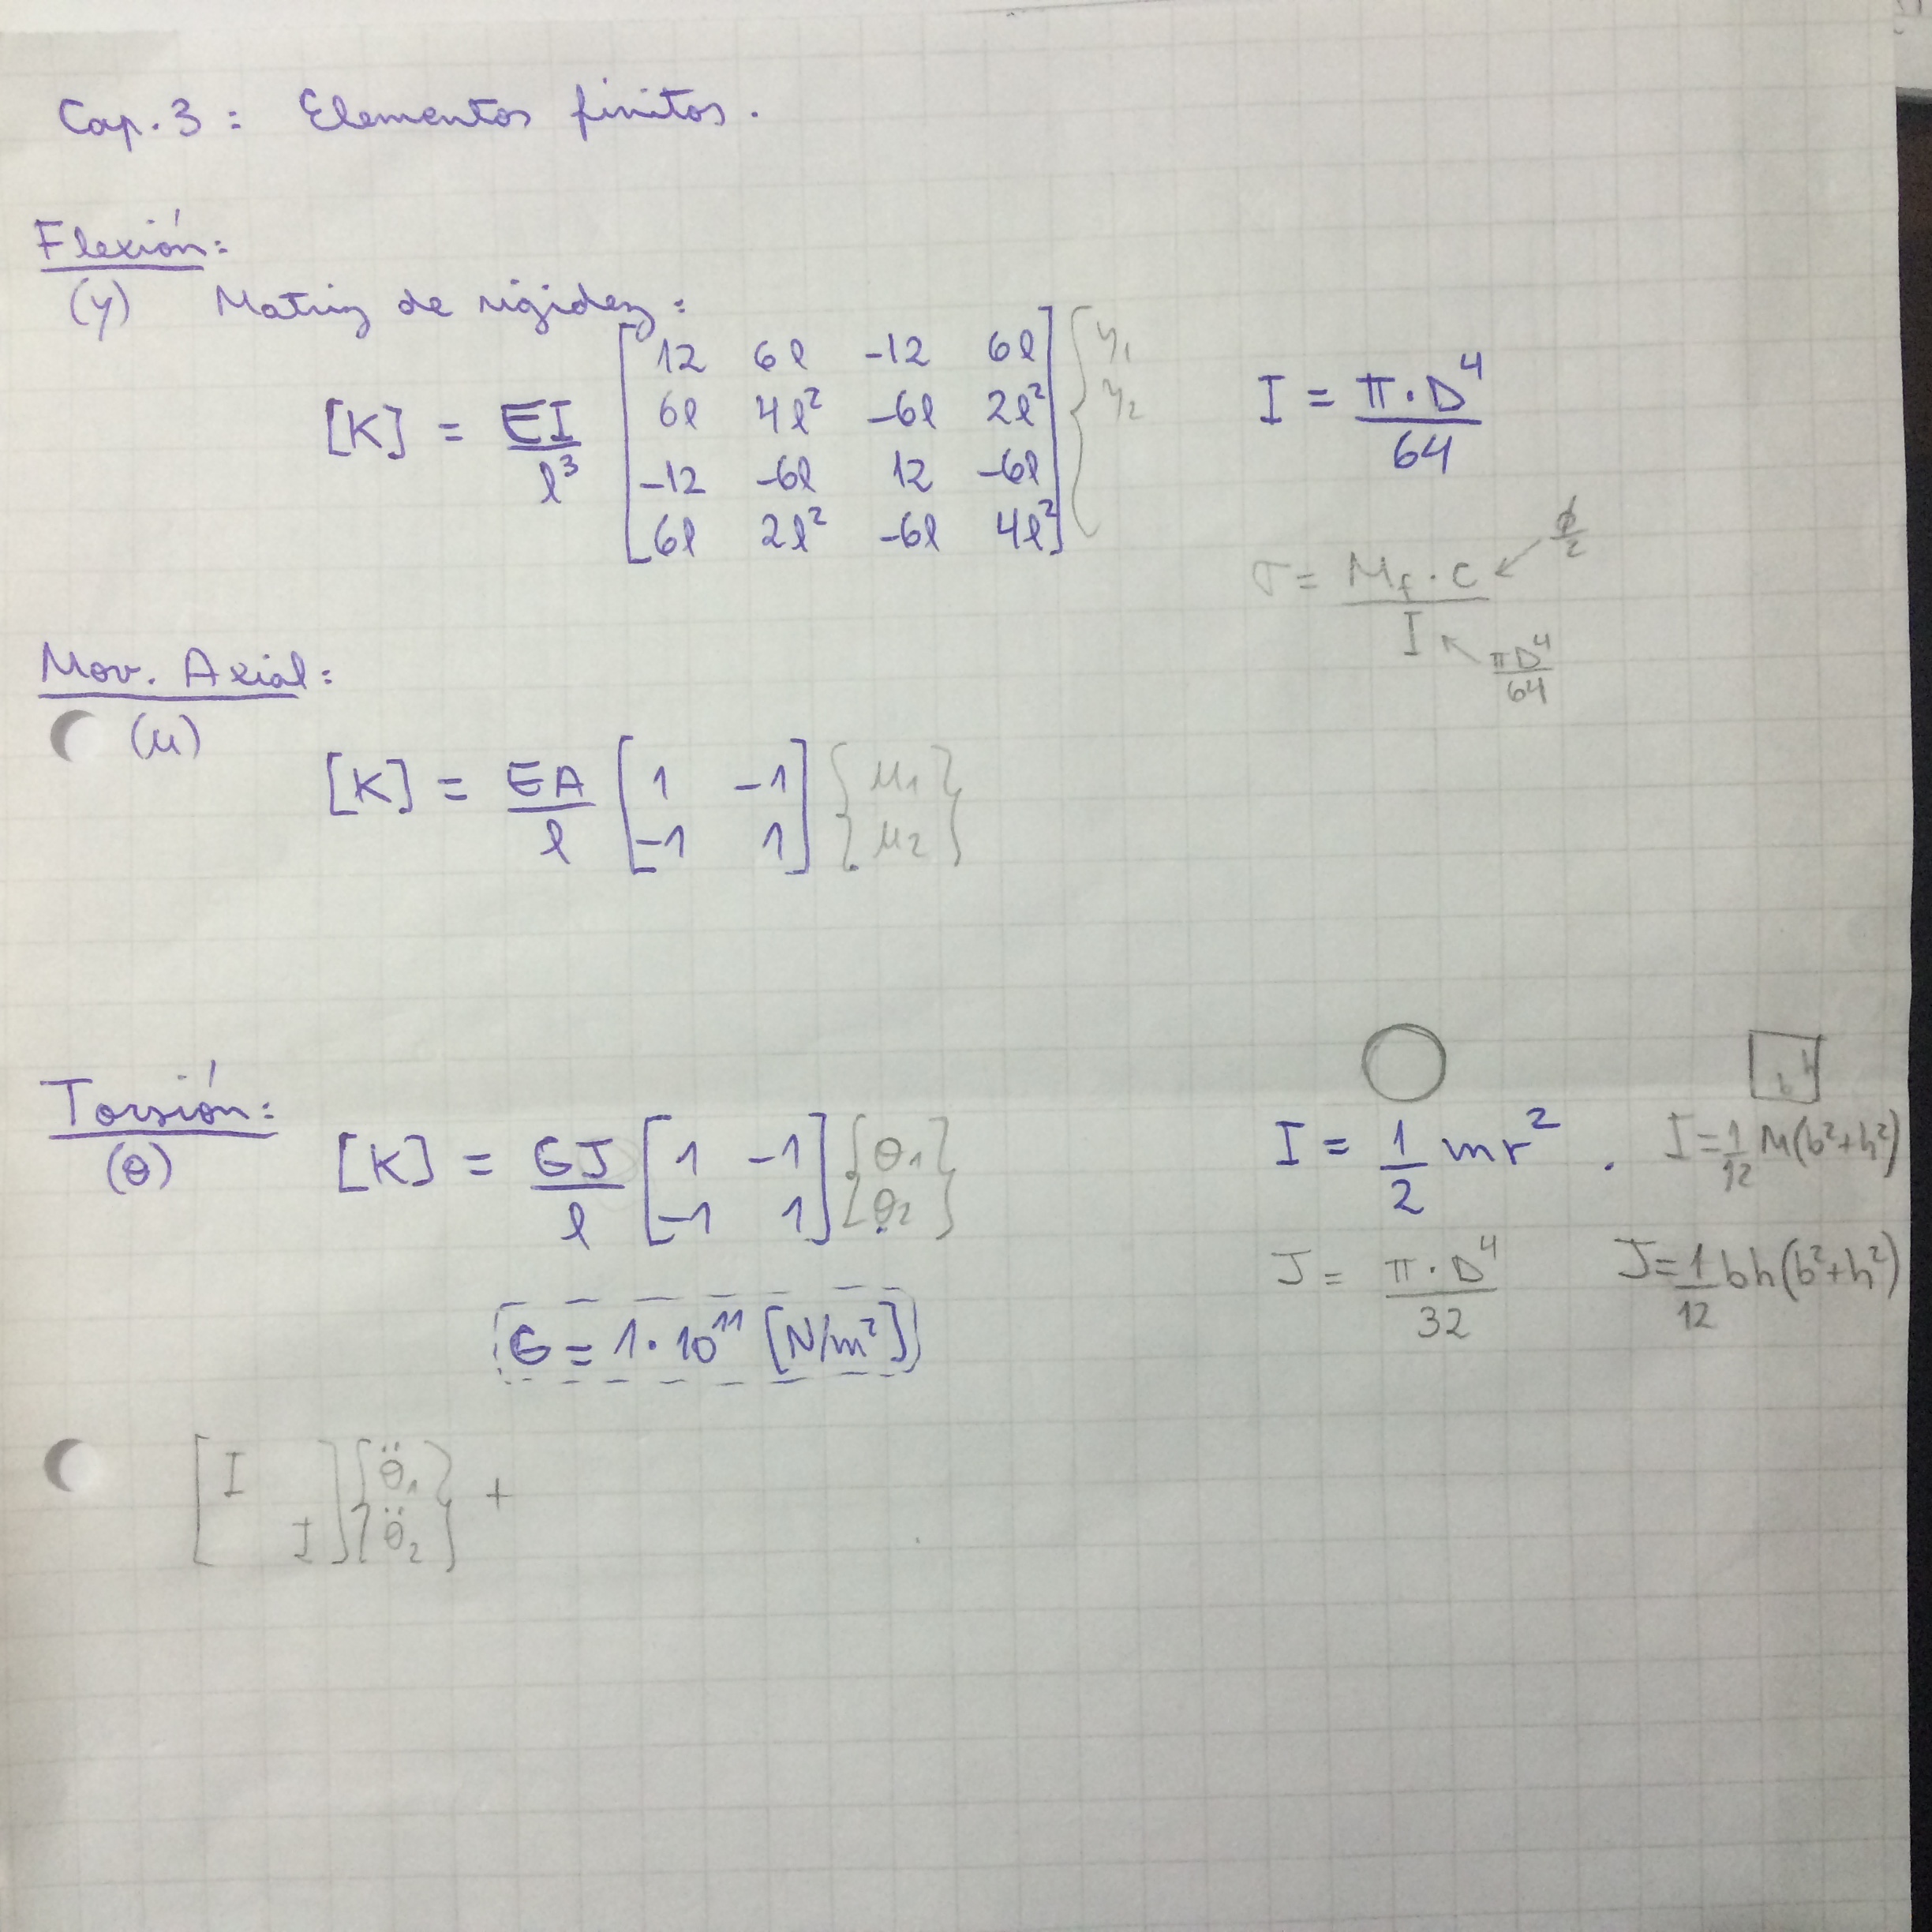 Cap. 3: Elementos finitos.
Flexión:
(y) Matriz de rigidez:
[K] = EI/l³ [12 6l -12 6l
6l 4l² -6l 2l²
-12 -6l 12 -6l
6l 2l² -6l 4l²] { y₁
y₂
I = π·D⁴/64
σ = M_f·c/I ← ϕ/2
πD⁴/64
Mov. Axial:
(μ)
[K] = EA/l [1 -1
-1 1] {μ₁
μ₂}
Torsión:
(θ)
[K] = GJ/l [1 -1
-1 1] {θ₁
θ₂}
G = 1·10¹¹ [N/m²]
b h
I = 1/2 mr². I = 1/12 M(b²+h²)
J = π·D⁴/32 J = 1/12 bh(b²+h²)
[I
I] {θ̈₁
θ̈₂} +